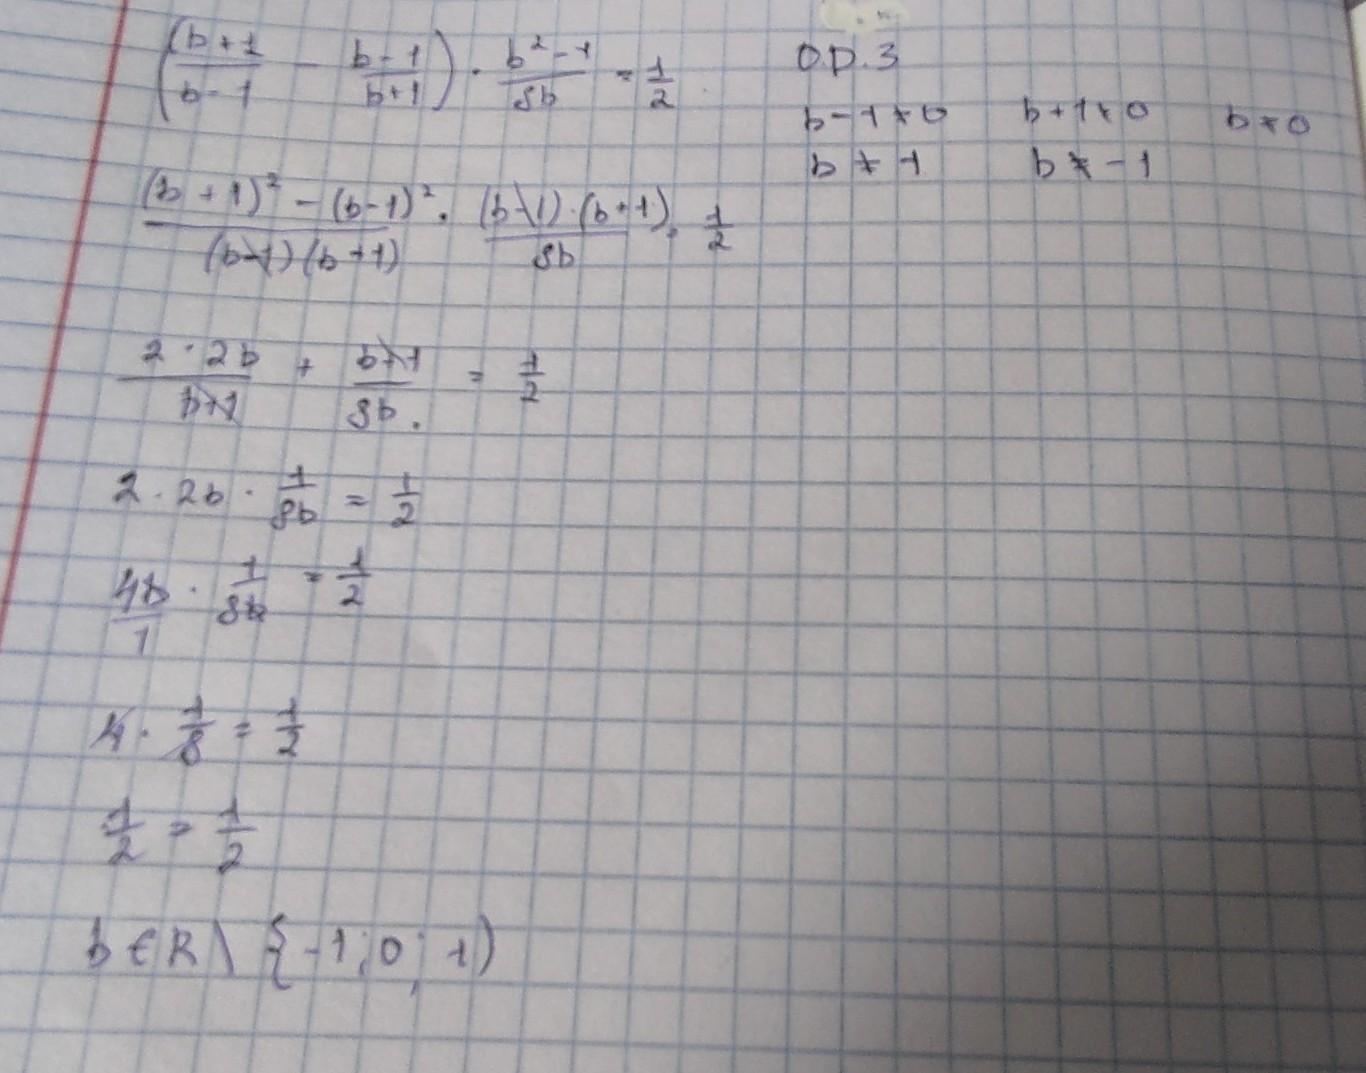 (b+1/b-1 - b-1/b+1) · b²-1/8b = 1/2
О.D.З
b-1≠0 b+1≠0 b≠0
b≠1 b≠-1
(b+1)²-(b-1)²/(b-1)(b+1) · (b-1)·(b+1)/8b · 1/2
2·2b/b+1 + b+1/8b. = 1/2
2·2b · 1/8b = 1/2
4b/1 · 1/8b = 1/2
4 · 1/8 = 1/2
1/2 = 1/2
b∈R\{-1;0;1)